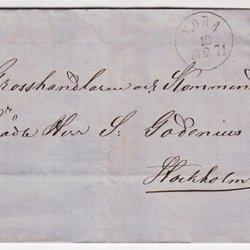 NORA
10
2
71
Grosshandlaren och Kommend
Herr S. Godenius
Stockholm